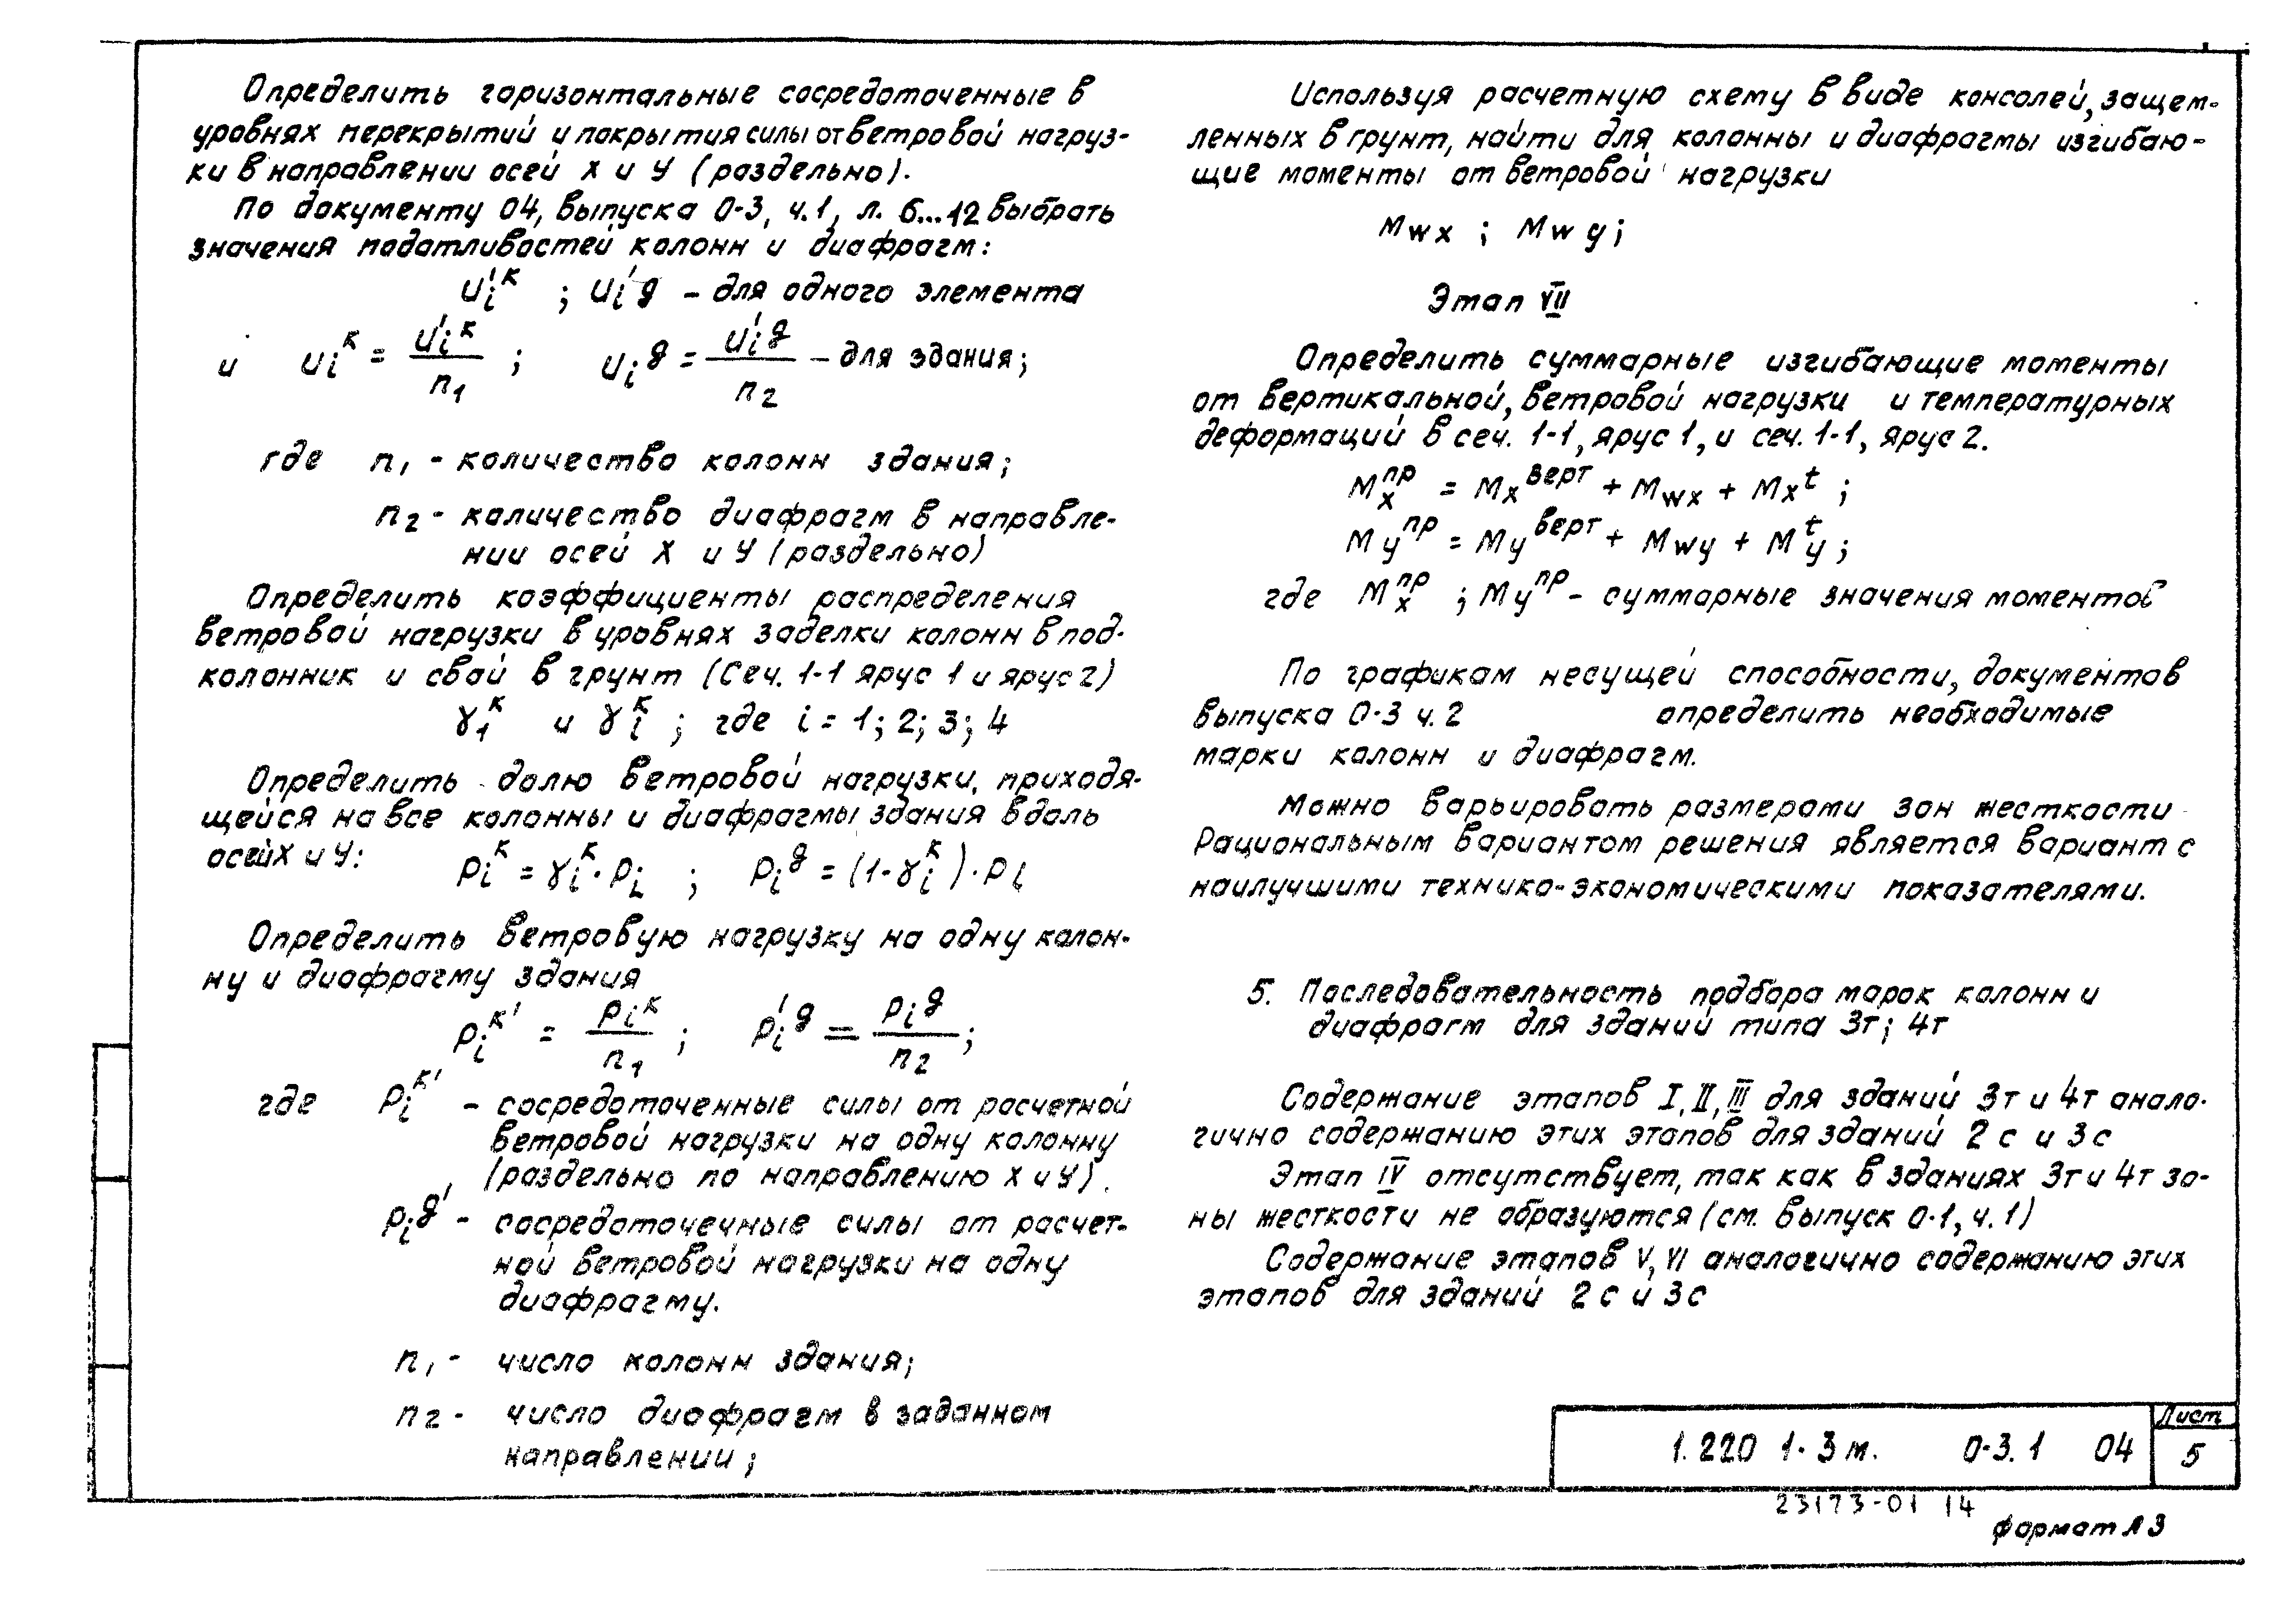 Определить горизонтальные сосредоточенные в
уровнях перекрытий и покрытия силы от ветровой нагруз-
ки в направлении осей X и У (раздельно).
По документу 04, выпуска 0-3, ч.1, л. 6...12 выбрать
значения податливостей колонн и диафрагм:
u'ᵢᵏ ; u'ᵢᵍ – для одного элемента
и uᵢᵏ = u'ᵢᵏ / n₁ ; uᵢᵍ = u'ᵢᵍ / n₂ – для здания;
где n₁ - количество колонн здания;
n₂ - количество диафрагм в направле-
нии осей X и У (раздельно)
Определить коэффициенты распределения
ветровой нагрузки в уровнях заделки колонн в под-
колонник и свай в грунт (Сеч. 1-1 ярус 1 и ярус 2)
γ₁ᵏ и γᵢᵏ ; где i = 1; 2; 3; 4
Определить долю ветровой нагрузки, приходя-
щейся на все колонны и диафрагмы здания вдоль
осей X и У: pᵢᵏ = γᵢᵏ · pᵢ ; pᵢᵍ = (1-γᵢᵏ) · pᵢ
Определить ветровую нагрузку на одну колон-
ну и диафрагму здания
pᵢᵏ' = pᵢᵏ / n₁ ; p'ᵢᵍ = pᵢᵍ / n₂ ;
где pᵢᵏ' - сосредоточенные силы от расчетной
ветровой нагрузки на одну колонну
(раздельно по направлению X и У).
pᵢᵍ' - сосредоточечные силы от расчет-
ной ветровой нагрузки на одну
диафрагму.
n₁ - число колонн здания;
n₂ - число диафрагм в заданном
направлении;
Используя расчетную схему в виде консолей, защем-
ленных в грунт, найти для колонны и диафрагмы изгибаю-
щие моменты от ветровой нагрузки
Mwx ; Mwy;
Этап VII
Определить суммарные изгибающие моменты
от вертикальной, ветровой нагрузки и температурных
деформаций в сеч. 1-1, ярус 1, и сеч. 1-1, ярус 2.
Mₓпр = Mₓверт + Mwx + Mₓᵗ ;
Myпр = Myверт + Mwy + Myᵗ ;
где Mₓпр ; Myпр - суммарные значения моментов
По графикам несущей способности, документов
выпуска 0-3 ч. 2 определить необходимые
марки колонн и диафрагм.
Можно варьировать размерами зон жесткости
Рациональным вариантом решения является вариант с
наилучшими технико-экономическими показателями.
5. Последовательность подбора марок колонн и
диафрагм для зданий типа 3т; 4т
Содержание этапов I, II, III для зданий 3т и 4т анало-
гично содержанию этих этапов для зданий 2с и 3с
Этап IV отсутствует, так как в зданиях 3т и 4т зо-
ны жесткости не образуются (см. выпуск 0-1, ч. 1)
Содержание этапов V, VI аналогично содержанию этих
этапов для зданий 2с и 3с
1.220 1-3м. 0-3.1 04
Лист
5
23173-01 14
формат А3